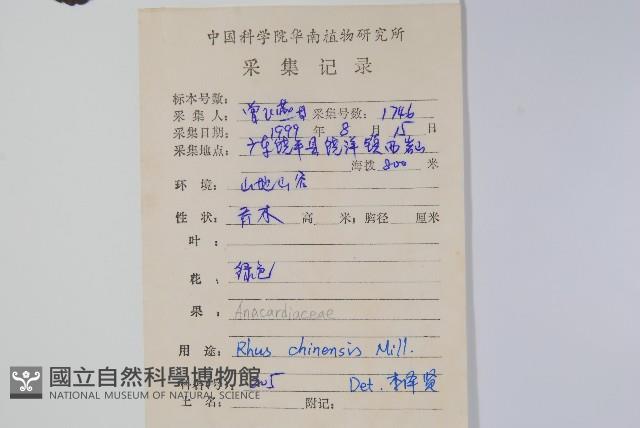 中国科学院华南植物研究所
采集记录
标本号数:
采集人: 曾飞燕 采集号数: 1746
采集日期: 1999 年 8 月 15 日
采集地点: 广东饶平县饶洋镇西岩山
海拨 800 米
环境: 山地山谷
性状: 乔木 高 米; 胸径 厘米
叶:
花: 绿色
果: Anacardiaceae
用途: Rhus chinensis Mill.
205 Det. 李泽贤
土名: 附记:
國立自然科學博物館
NATIONAL MUSEUM OF NATURAL SCIENCE